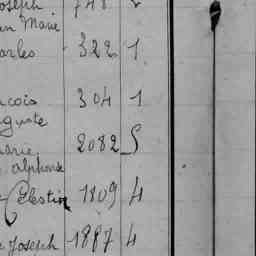 Joseph 748 2
an Marie
arles 322 1
ncois 304 1
guste
arie 2082 5
alphonse
Celestin 1809 4
Joseph 1887 4